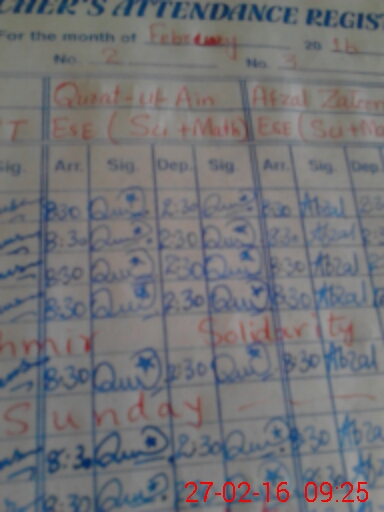 CHER'S ATTENDANCE REGIST
For the month of February 2016
No. 2 No. 3
Qurat-ul Ain Afzal
T ESE (Sci+Math) ESE (Sci+Ma
Sig. Arr. Sig. Dep. Sig. Arr. Sig. Dep
8:30 Qur 2:30 Qur 8:30 Afzal 2:3
8:30 Qur 2:30 Qur 8:30 Afzal
8:30 Qur 2:30 Qur 8:30 Afzal
8:30 Qur 2:30 Qur 8:30 Afzal
hmir Solidarity
8:30 Qur 2:30 Qur 8:30 Afzal
Sunday
8:30 Qur 2:30 Qur 8:30 Afza
8:30 Qur
27-02-16 09:25